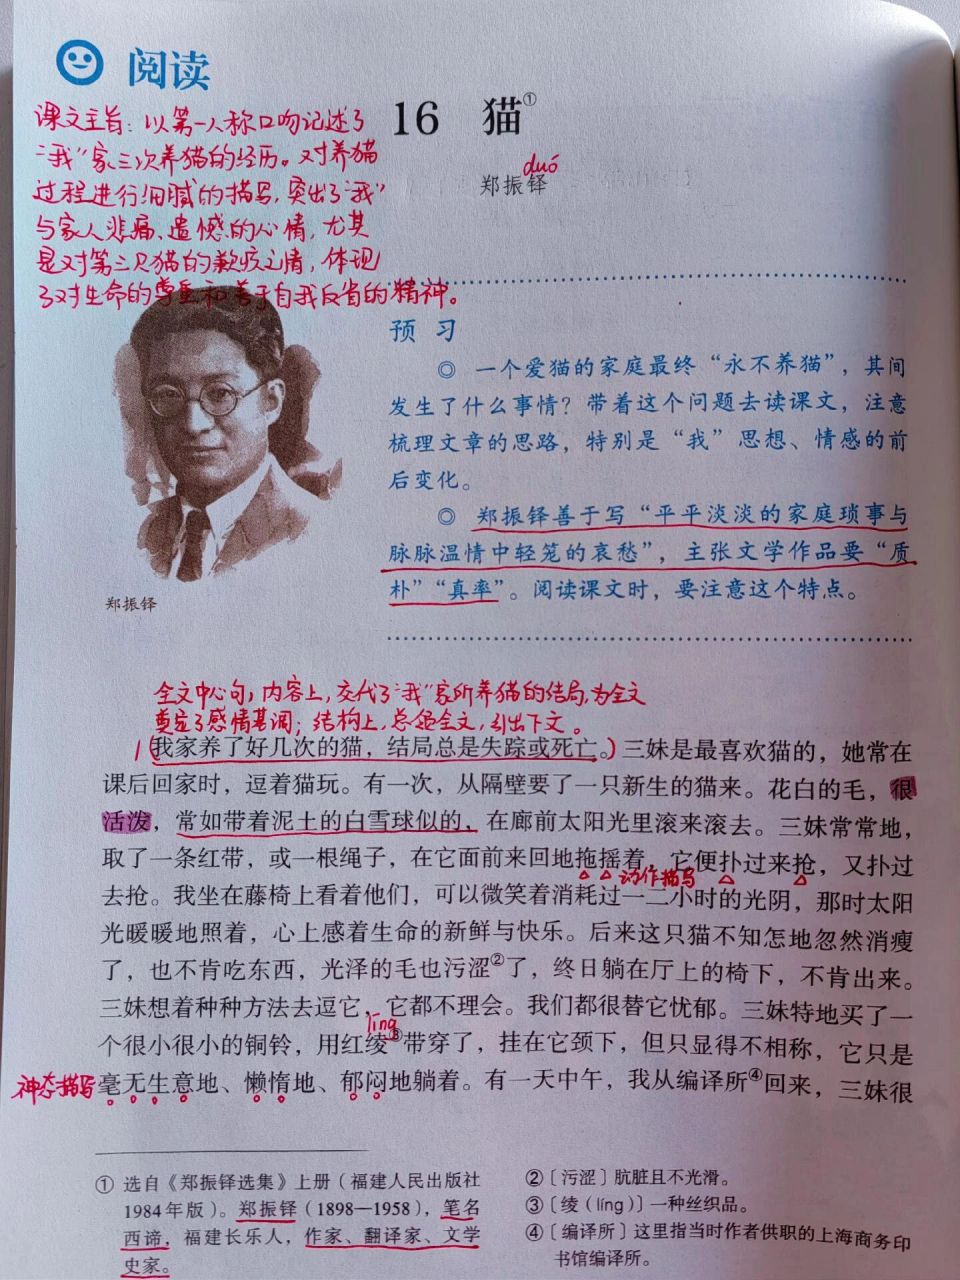 阅读
课文主旨：以第一人称口吻记述了
“我”家三次养猫的经历。对养猫
过程进行细腻的描写，突出了“我”
与家人悲痛、遗憾的心情，尤其
是对第三只猫的歉疚之情，体现
了对生命的尊重和善于自我反省的精神。
16 猫①
duó
郑振铎
郑振铎
预 习
◎ 一个爱猫的家庭最终“永不养猫”，其间
发生了什么事情？带着这个问题去读课文，注意
梳理文章的思路，特别是“我”思想、情感的前
后变化。
◎ 郑振铎善于写“平平淡淡的家庭琐事与
脉脉温情中轻笼的哀愁”，主张文学作品要“质
朴”“真率”。阅读课文时，要注意这个特点。
全文中心句；内容上，交代了“我”家所养猫的结局，为全文
奠定了感情基调；结构上，总领全文，引出下文。
1（我家养了好几次的猫，结局总是失踪或死亡。）三妹是最喜欢猫的，她常在
课后回家时，逗着猫玩。有一次，从隔壁要了一只新生的猫来。花白的毛，很
活泼，常如带着泥土的白雪球似的，在廊前太阳光里滚来滚去。三妹常常地，
取了一条红带，或一根绳子，在它面前来回地拖摇着，它便扑过来抢，又扑过
动作描写
去抢。我坐在藤椅上看着他们，可以微笑着消耗过一二小时的光阴，那时太阳
光暖暖地照着，心上感着生命的新鲜与快乐。后来这只猫不知怎地忽然消瘦
了，也不肯吃东西，光泽的毛也污涩②了，终日躺在厅上的椅下，不肯出来。
三妹想着种种方法去逗它，它都不理会。我们都很替它忧郁。三妹特地买了一
líng
个很小很小的铜铃，用红绫③带穿了，挂在它颈下，但只显得不相称，它只是
神态描写
毫无生意地、懒惰地、郁闷地躺着。有一天中午，我从编译所④回来，三妹很
① 选自《郑振铎选集》上册（福建人民出版社
1984年版）。郑振铎（1898—1958），笔名
西谛，福建长乐人，作家、翻译家、文学
史家。
②〔污涩〕肮脏且不光滑。
③〔绫（líng）〕一种丝织品。
④〔编译所〕这里指当时作者供职的上海商务印
书馆编译所。